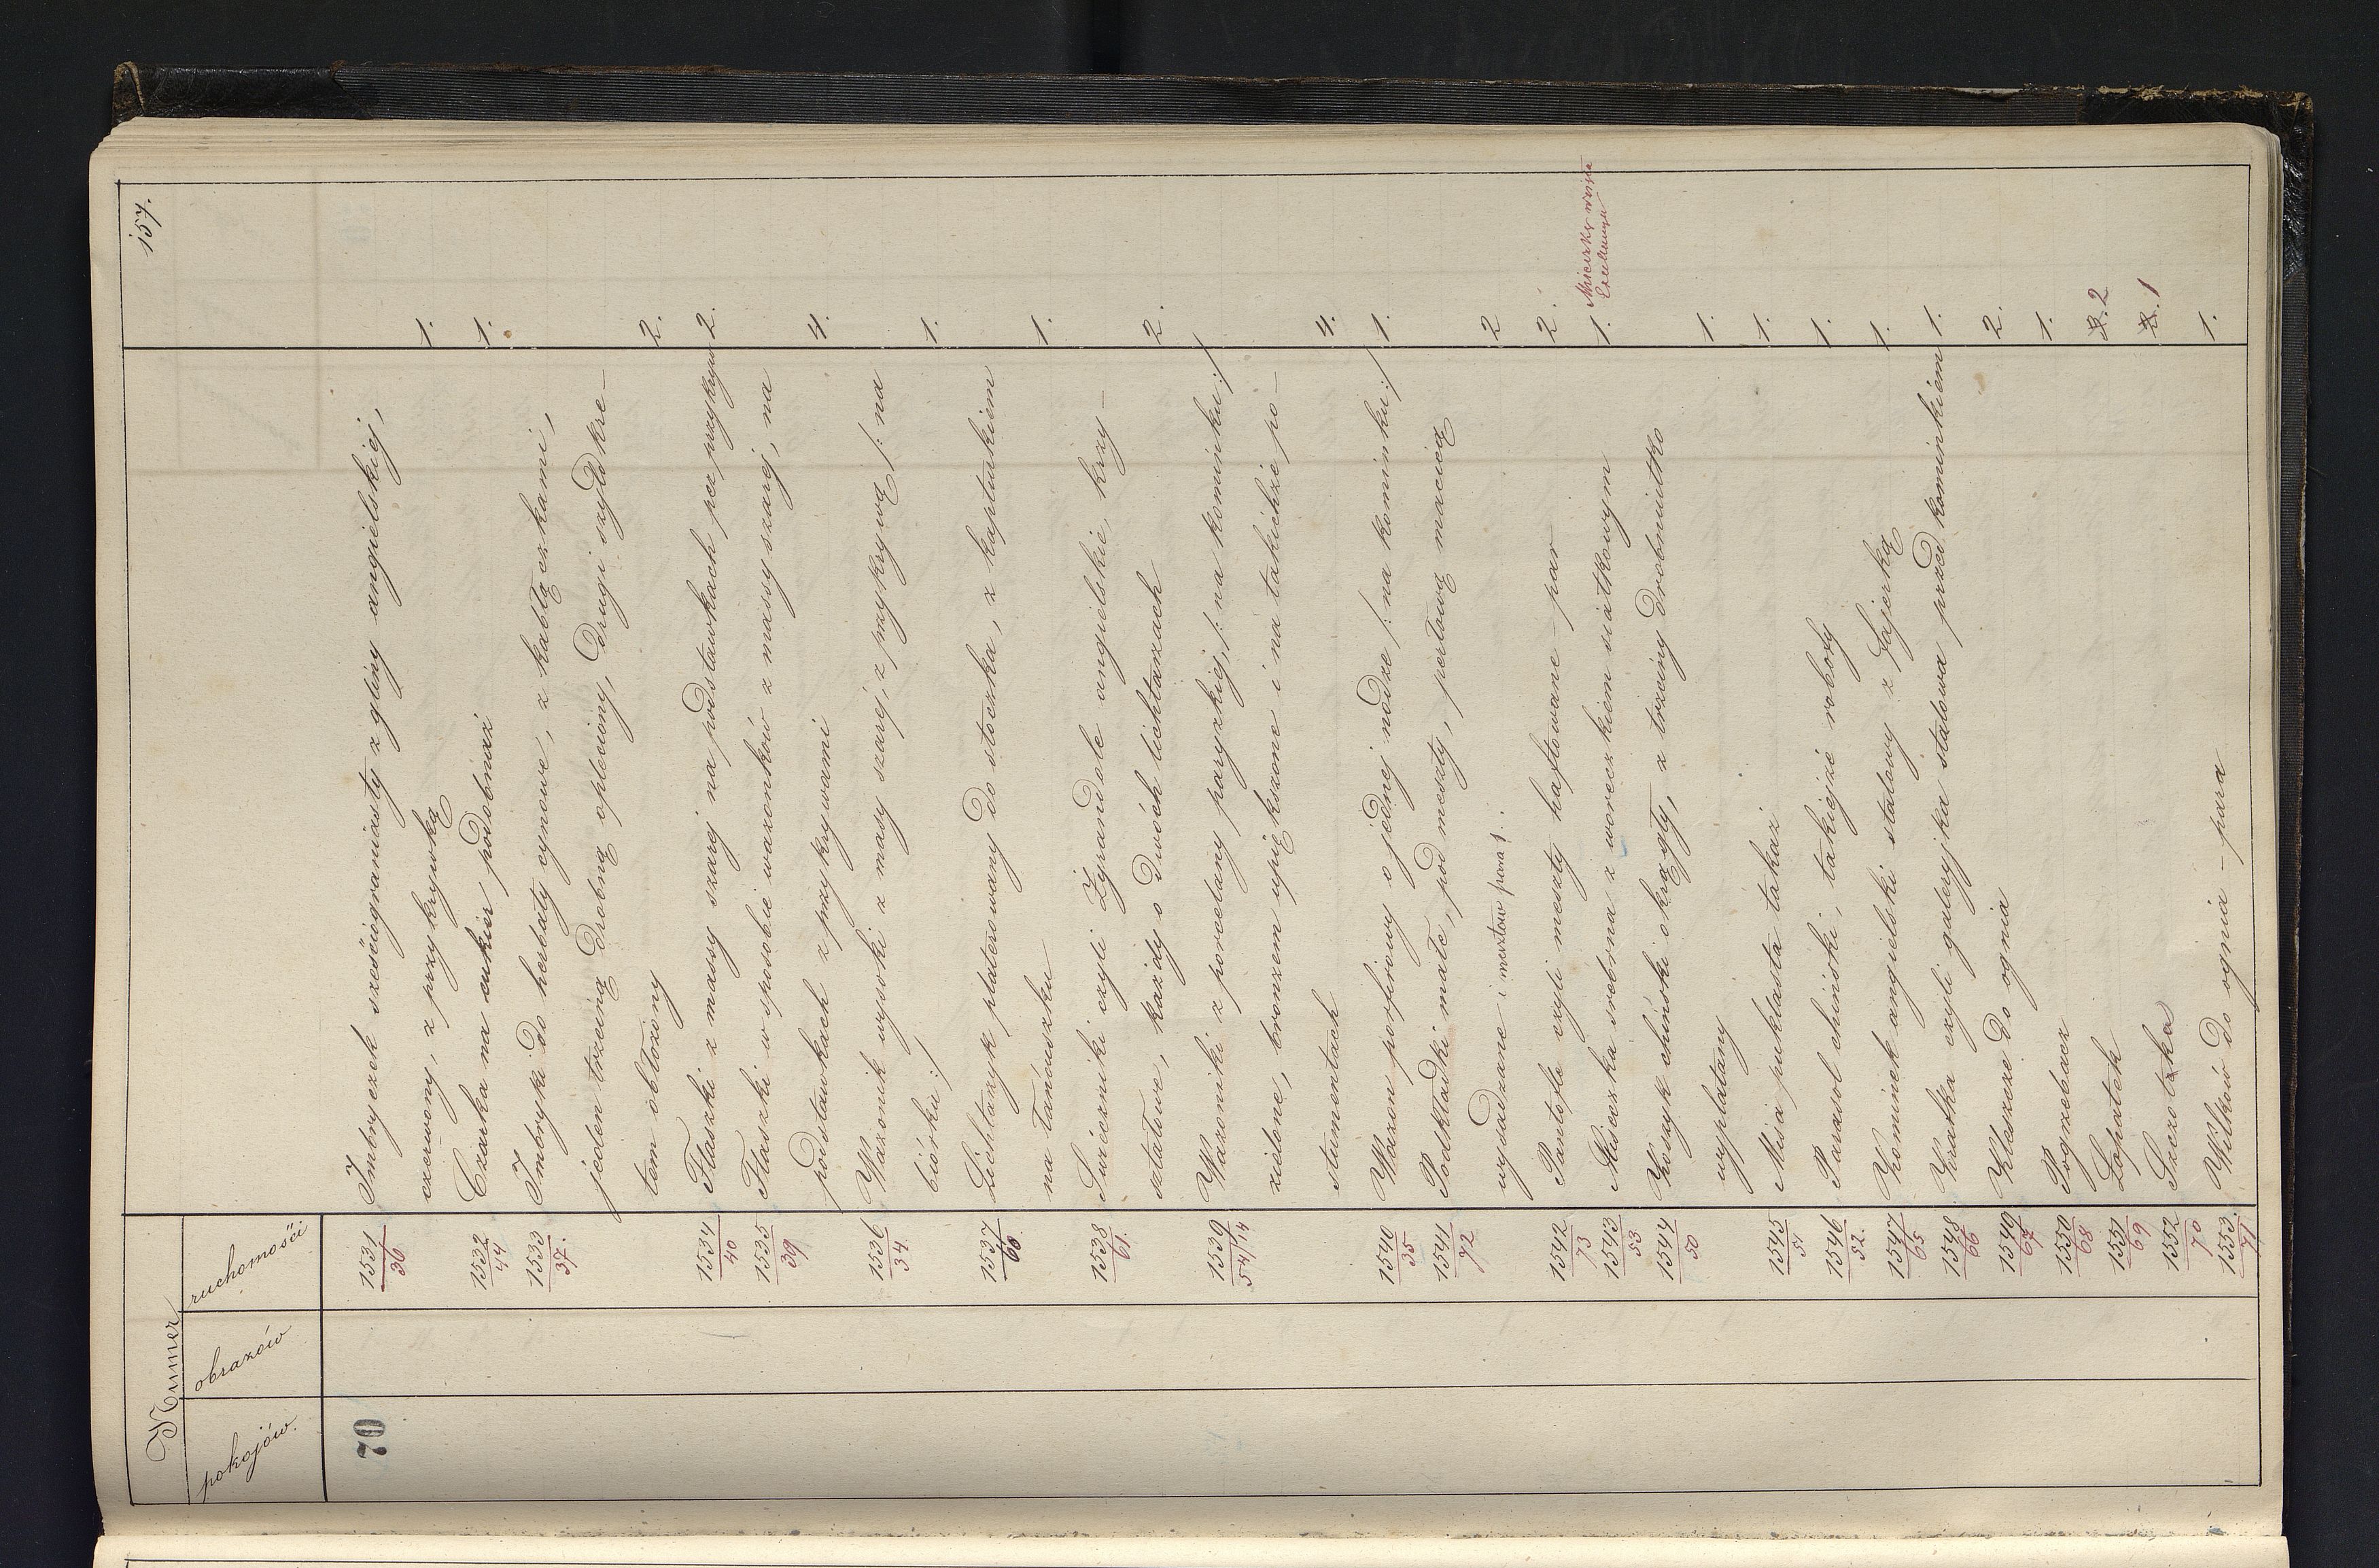 157.
Numer
pokojów. obrazów ruchomości
70
1531 Imbryczek sześciograniasty z gliny angielskiej,
36 czerwony, z przykrywką 1.
1532 Czarka na cukier podobnaż 1.
44
1533 Imbryki do herbaty cynowe, z kabłączkami,
37. jeden trzciną drobną opleciony, drugi szyldkre-
tem obłożony 2.
1534 Flaszki z massy szarej na podstawkach bez przykryw 2.
40
1535 Flaszki w sposobie wazonków z massy szarej, na
39 podstawkach z przykrywami 4.
1536 Wazonik wysoki z masy szarej, z przykrywą /: na
34. biórku :/ 1.
1537 Lichtarzyk platerowany do stoczka, z kapturkiem
60. na łańcuszku 1.
1538 Świeczniki czyli Żyrandole angielskie, krzy-
61. ształowe, każdy o dwóch lichtarzach 2.
1539 Wazoniki z porcelany paryzkiej, /: na kominku :/
54/14 zielone, bronzem upiększone i na takichże po-
stumentach 4.
1540 Wazon porfirowy o jednej nodze /: na kominku :/ 1.
35
1541 Podkładki małe, pod meszty, perłową macicą
72 wysadzane i mesztów para 1. 2
1542 Pantofle czyli meszty haftowane - par 2.
73
1543 Miseczka srebrna z woreczkiem siatkowym 1. Miseczkę wzięła
53 Exelencya
1544 Koszyk chiński okrągły, z trzciny drobniutko
50 wyplatany 1.
1545 Misa puklasta takaż 1.
51
1546 Parasol chiński, takiejże roboty 1.
52.
1547 Kominek angielski stalowy z fajerką 1.
65
1548 Kratka czyli galeryjka stalowa przed kominkiem 1.
66
1549 Kleszcze do ognia 2.
67
1550 Pogrzebacz 1.
68
1551 Łopatek 2
69
1552 Szczotka 1
70
1553. Wilków do ognia - para 1.
71